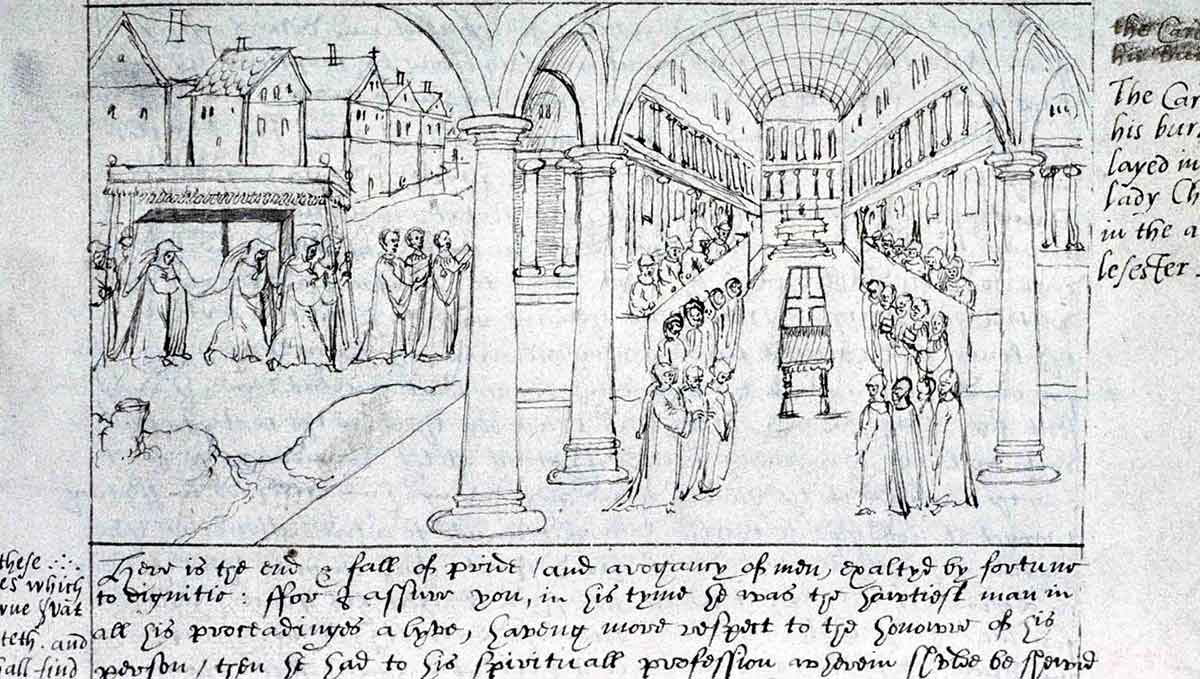 the Car
The Car
his bur
layed in
lady Ch
in the a
lesester
these
es which
wue
teth. and
all find
Here is the end & fall of pride / and arogancy of men, exaltyd by fortune
to dignitie: ffor I assure you, in his tyme he was the hawtiest man in
all his proceadinges alyve, haveng more respect to the honowre of his
person / then he had to his spirituall profession wherein shuld be shewed